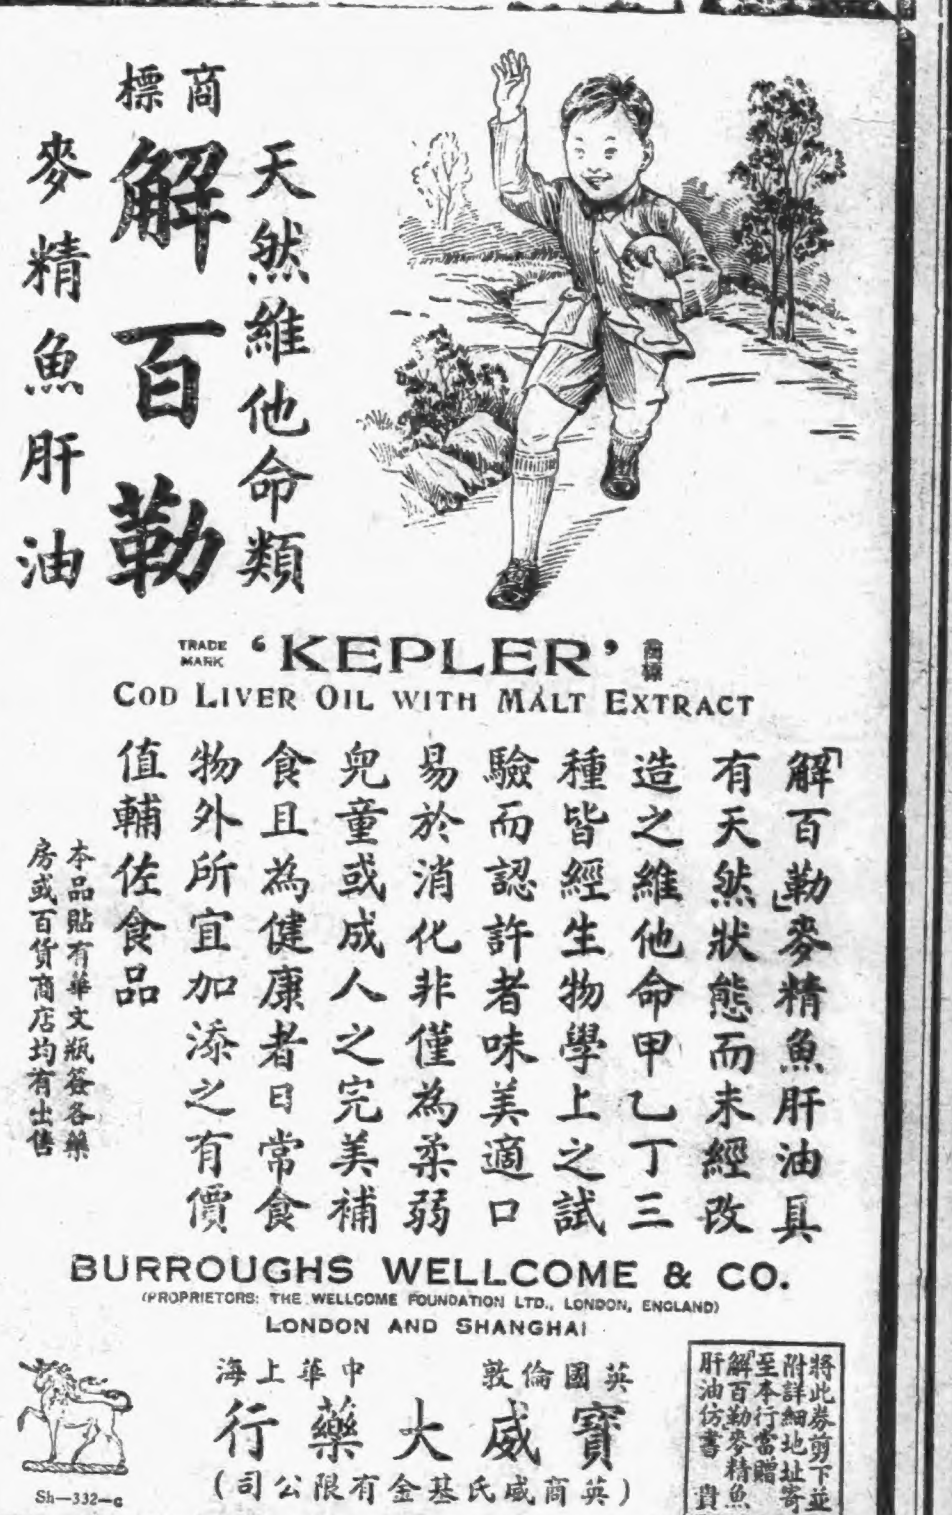 商標
天然維他命類
解百勒
麥精魚肝油
TRADE MARK 'KEPLER' 商標
COD LIVER OIL WITH MALT EXTRACT
「解百勒」麥精魚肝油具
有天然狀態而未經改
造之維他命甲乙丁三
種皆經生物學上之試
驗而認許者味美適口
易於消化非僅為柔弱
兒童或成人之完美補
食且為健康者日常食
物外所宜加添之有價
值輔佐食品
本品貼有華文瓶簽各藥
房或百貨商店均有出售
BURROUGHS WELLCOME & CO.
(PROPRIETORS: THE WELLCOME FOUNDATION LTD., LONDON, ENGLAND)
LONDON AND SHANGHAI
英國倫敦 中華上海
寶威大藥行
(英商威氏基金有限公司)
將此券剪下並
附詳細地址寄
至本行當贈
「解百勒麥精魚
肝油仿書 貴
Sh—332—c